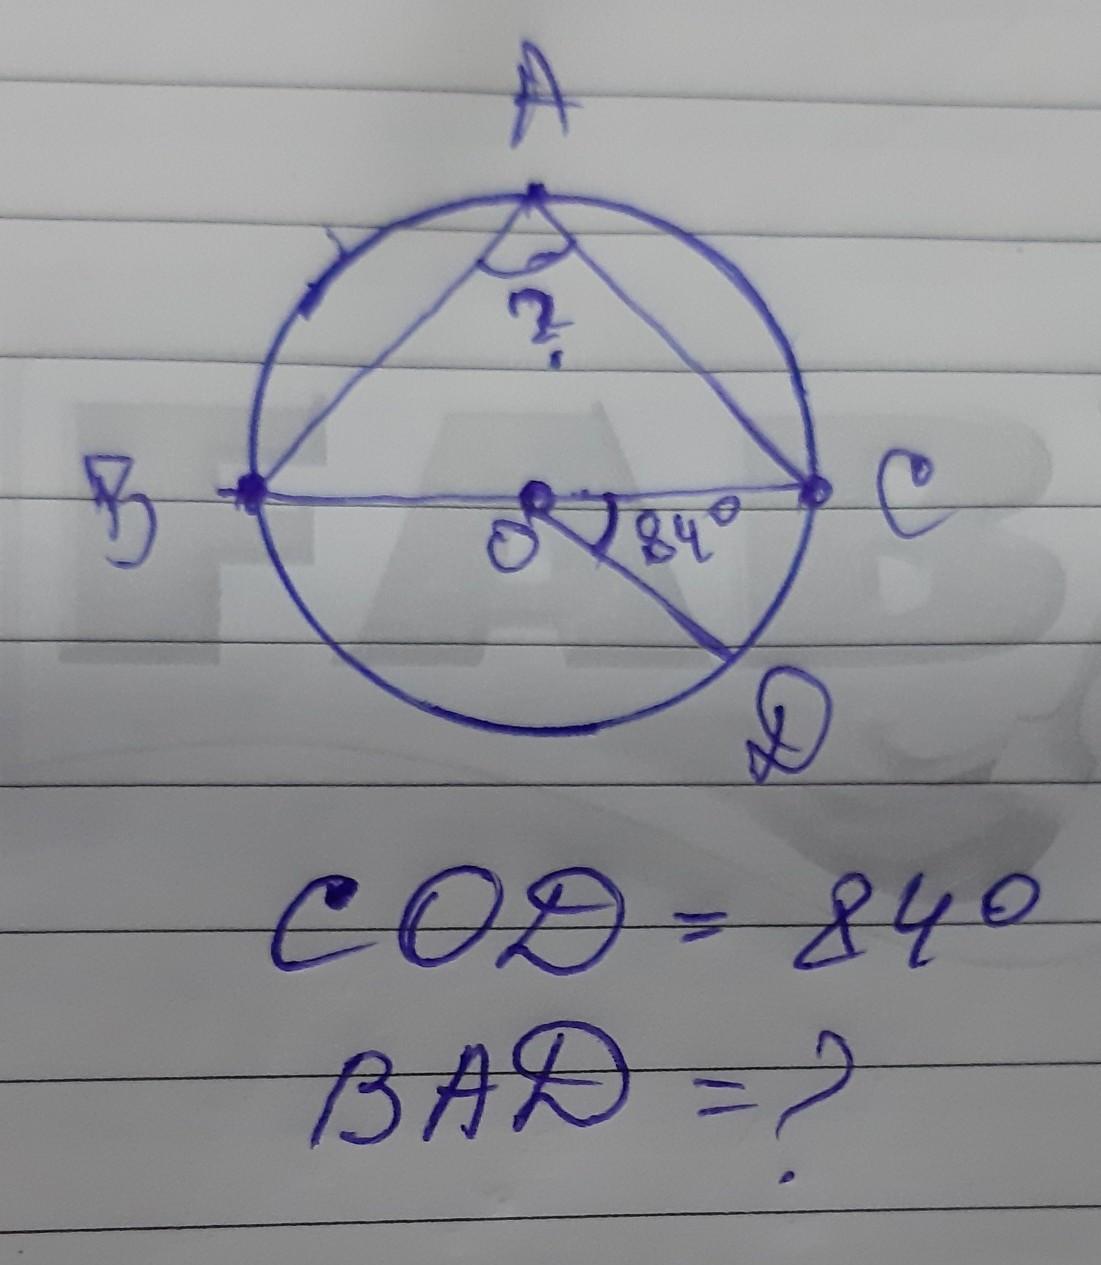 A
?
B
C
O
84°
D
COD = 84°
BAD = ?